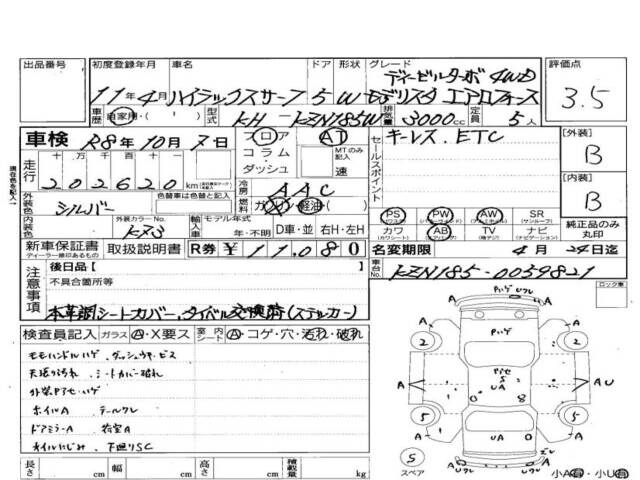 出品番号 初度登録年月 車名 ドア 形状 グレード 評価点
ディーゼルターボ 4WD
11年4月 ハイラックスサーフ 5 W モデリスタ エアロフォース 3.5
車歴 自家用・( ) 型式 KH-KZN185W 排気量 3000cc 定員 5人
車検 R8年10月7日 フロア AT キーレス、ETC
コラム・ダッシュ MTのみ記入 速
セールスポイント
[外装] B
走行 十万 万 千 百 十
202620 km
冷房 AAC
[内装] B
外装色 シルバー 色替車は色替と記入 燃料 ガソリン・軽油( )
内装色 外装カラーNo. 輸入車 モデル年式 年・不明 D車・並 右H・左H
PS PW AW SR(サンルーフ)
カワ(カワシート) AB TV ナビ(ナビゲーション) 純正品のみ丸印
新車保証書 取扱説明書 R券 ¥11,080 名変期限 4月24日迄
ディーラー捺印あるもの
車台No. KZN185-0039821
注意事項 後日品【 】 ロック車
不具合箇所等
本革調シートカバー、タイベル交換済(ステッカー)
検査員記入 ガラス A・X要ス 室内シート A・コゲ・穴・汚れ・破れ
モモハンドルハゲ、ダッシュウキ・ビス
天張りヨゴレ シートカバー破れ
外装Pアセ・ハゲ
ホイルA テールワレ
ドアミラーA 荷室A
オイルにじみ、下廻りSC
長さ cm 幅 cm 高さ cm 積載量 kg
Pハゲ
A 2 2 A
Pアセ
S
UA
A A AU
0 8
5 UA 5
A A
5
スペア
A A
小A有・小U有